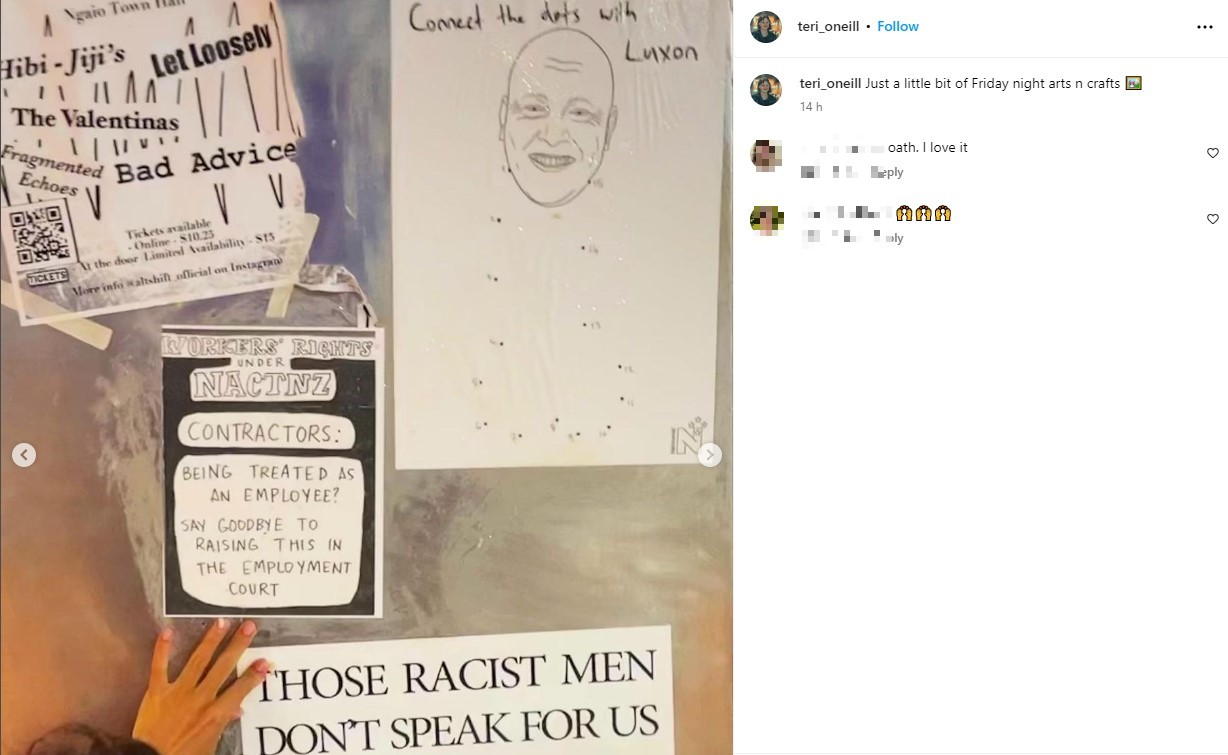 Ngaio Town Hall
Hibi-Jiji's
Let Loosely
The Valentinas
Fragmented
Echoes
Bad Advice
Tickets available
- Online - $10.25
At the door Limited Availability - $15
TICKETS
More info @altshift_official on Instagram
Connect the dots with
Luxon
WORKERS' RIGHTS
UNDER
NACTNZ
CONTRACTORS:
BEING TREATED AS
AN EMPLOYEE?
SAY GOODBYE TO
RAISING THIS IN
THE EMPLOYMENT
COURT
THOSE RACIST MEN
DON'T SPEAK FOR US
teri_oneill • Follow
teri_oneill Just a little bit of Friday night arts n crafts
14 h
oath. I love it